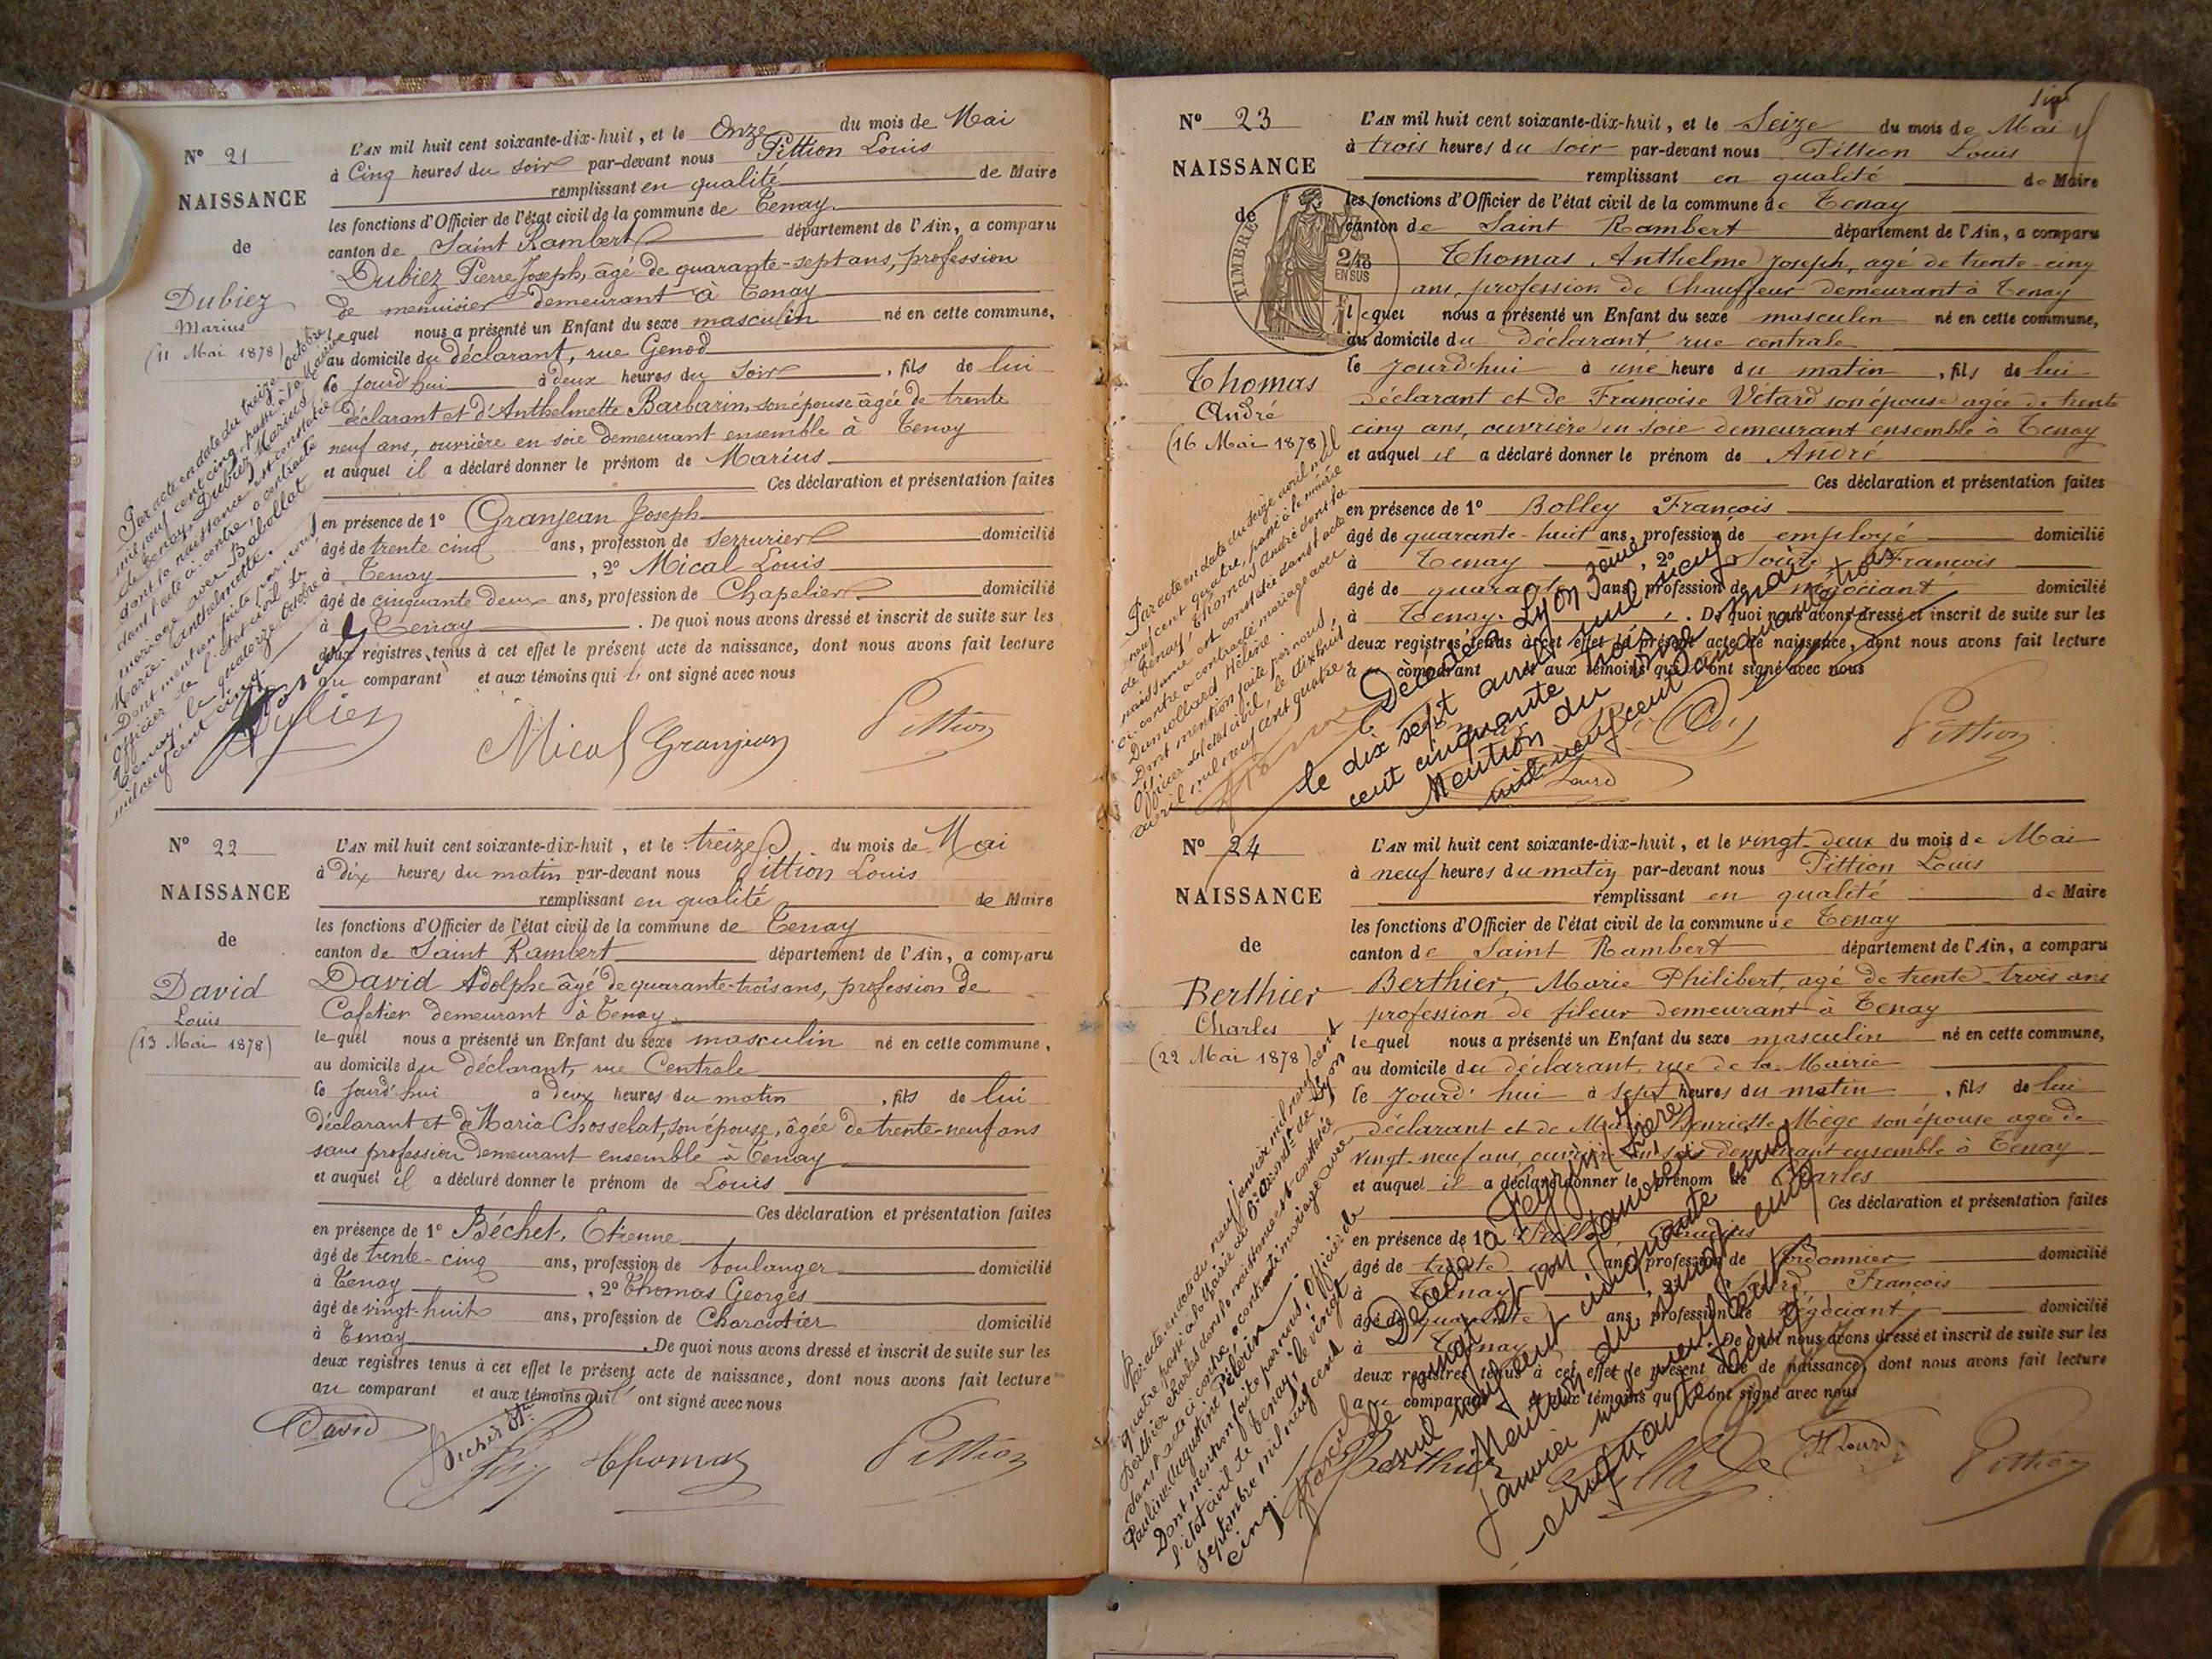 N° 21
NAISSANCE
de
Dubiez
Marius
(11 Mai 1878)
L'AN mil huit cent soixante-dix-huit, et le Onze du mois de Mai
à Cinq heures du soir par-devant nous Pittion Louis
remplissant en qualité de Maire
les fonctions d'Officier de l'état civil de la commune de Tenay
canton de Saint Rambert département de l'Ain, a comparu
Dubiez Pierre Joseph, âgé de quarante-sept ans, profession
de menuisier demeurant à Tenay
lequel nous a présenté un Enfant du sexe masculin né en cette commune,
au domicile du déclarant, rue Genod
le jourd'hui à deux heures du soir, fils de lui
déclarant et d'Anthelmette Barbarin, son épouse âgée de trente
neuf ans, ouvrière en soie demeurant ensemble à Tenay
et auquel il a déclaré donner le prénom de Marius
Ces déclaration et présentation faites
en présence de 1° Granjean Joseph
âgé de trente cinq ans, profession de serrurier domicilié
à Tenay, 2° Mical Louis
âgé de cinquante deux ans, profession de Chapelier domicilié
à Tenay. De quoi nous avons dressé et inscrit de suite sur les
deux registres tenus à cet effet le présent acte de naissance, dont nous avons fait lecture
au comparant et aux témoins qui ont signé avec nous
Dubiez Mical Granjean Pittion
Par acte en date du treize Octobre
mil neuf cent cinq, passé à la Mairie
de Tenay, Dubiez Marius
dont la naissance est constatée
dans l'acte ci-contre, a contracté
mariage avec Babollat
Marie Anthelmette.
Dont mention faite par nous
Officier de l'état civil de
Tenay, le quatorze Octobre
mil neuf cent cinq.
N° 22
NAISSANCE
de
David
Louis
(13 Mai 1878)
L'AN mil huit cent soixante-dix-huit, et le treize du mois de Mai
à Dix heures du matin par-devant nous Pittion Louis
remplissant en qualité de Maire
les fonctions d'Officier de l'état civil de la commune de Tenay
canton de Saint Rambert département de l'Ain, a comparu
David Adolphe âgé de quarante-trois ans, profession de
Cafetier demeurant à Tenay
lequel nous a présenté un Enfant du sexe masculin né en cette commune,
au domicile du déclarant, rue Centrale
le jourd'hui à deux heures du matin, fils de lui
déclarant et de Maria Chosselat, son épouse, âgée de trente-neuf ans
sans profession demeurant ensemble à Tenay
et auquel il a déclaré donner le prénom de Louis
Ces déclaration et présentation faites
en présence de 1° Béchet, Etienne
âgé de trente-cinq ans, profession de boulanger domicilié
à Tenay, 2° Thomas Georges
âgé de vingt-huit ans, profession de Charcutier domicilié
à Tenay. De quoi nous avons dressé et inscrit de suite sur les
deux registres tenus à cet effet le présent acte de naissance, dont nous avons fait lecture
au comparant et aux témoins qui ont signé avec nous
David Béchet Thomas Pittion
N° 23
NAISSANCE
de
TIMBRE
2/10
EN SUS
Thomas
André
(16 Mai 1878)
L'AN mil huit cent soixante-dix-huit, et le Seize du mois de Mai
à trois heures du soir par-devant nous Pittion Louis
remplissant en qualité de Maire
les fonctions d'Officier de l'état civil de la commune de Tenay
canton de Saint Rambert département de l'Ain, a comparu
Thomas Anthelme Joseph, agé de trente-cinq
ans, profession de Chauffeur demeurant à Tenay
lequel nous a présenté un Enfant du sexe masculin né en cette commune,
au domicile du déclarant rue centrale
le jourd'hui à une heure du matin, fils de lui
déclarant et de Françoise Vétard son épouse agée de trente
cinq ans, ouvrière en soie demeurant ensemble à Tenay
et auquel il a déclaré donner le prénom de André
Ces déclaration et présentation faites
en présence de 1° Bolley François
âgé de quarante-huit ans, profession de employé domicilié
à Tenay, 2° François
âgé de ans, profession de négociant domicilié
à Tenay. De quoi nous avons dressé et inscrit de suite sur les
deux registres tenus à cet effet le présent acte de naissance, dont nous avons fait lecture
au comparant et aux témoins qui ont signé avec nous
Pittion
Par acte en date du seize avril mil
neuf cent quatre, passé à la mairie
de Tenay, Thomas André dont la
naissance est constatée dans l'acte
ci-contre a contracté mariage avec
Dumollard Hélène.
Dont mention faite par nous,
Officier de l'état civil, le dix huit
avril mil neuf cent quatre
Décédé à Lyon 3eme
le dix sept avril mil neuf
cent cinquante trois
Mention du mai
mil neuf cent cinquante trois
N° 24
NAISSANCE
de
Berthier
Charles
(22 Mai 1878)
L'AN mil huit cent soixante-dix-huit, et le vingt-deux du mois de Mai
à neuf heures du matin par-devant nous Pittion Louis
remplissant en qualité de Maire
les fonctions d'Officier de l'état civil de la commune de Tenay
canton de Saint Rambert département de l'Ain, a comparu
Berthier, Marie Philibert, agé de trente-trois ans
profession de fileur demeurant à Tenay
lequel nous a présenté un Enfant du sexe masculin né en cette commune,
au domicile du déclarant, rue de la Mairie
le jourd'hui à sept heures du matin, fils de lui
déclarant et de Marie Henriette Mège son épouse agée de
vingt-neuf ans, ouvrière en soie demeurant ensemble à Tenay
et auquel il a déclaré donner le prénom de Charles
Ces déclaration et présentation faites
en présence de 1°
âgé de trente ans, profession de Cordonnier domicilié
à Tenay, 2° François
âgé de quarante ans, profession de négociant domicilié
à Tenay. De quoi nous avons dressé et inscrit de suite sur les
deux registres tenus à cet effet le présent acte de naissance, dont nous avons fait lecture
au comparant et aux témoins qui ont signé avec nous
Berthier Pittion
Par acte en date du neuf janvier mil neuf cent
quatre passé à la Mairie du 6e arrondt de Lyon
Berthier Charles dont la naissance est constatée
dans l'acte ci-contre, a contracté mariage avec
Pauline Augustine Pélerin
Dont mention faite par nous, Officier de
l'état civil de Tenay, le vingt
septembre mil neuf cent
cinq.
Décédé à (Isère)
le vingt et un Janvier
mil neuf cent cinquante cinq
Mention du vingt cinq
Janvier mil neuf cent
cinquante cinq